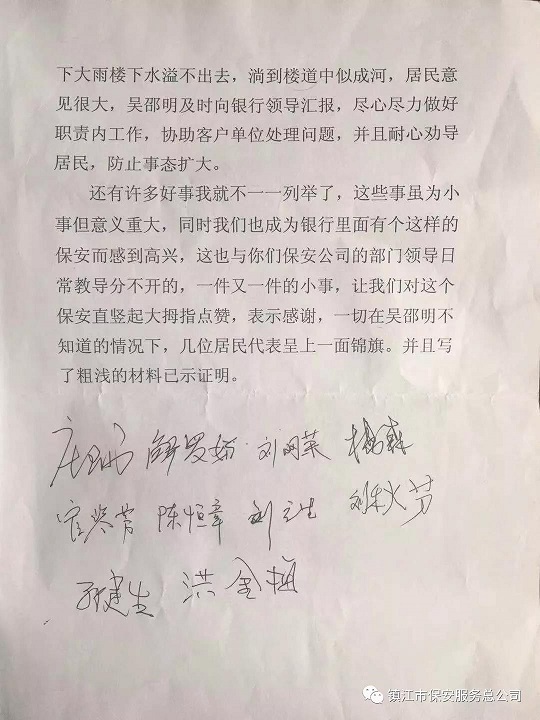 下大雨楼下水溢不出去，淌到楼道中似成河，居民意
见很大，吴邵明及时向银行领导汇报，尽心尽力做好
职责内工作，协助客户单位处理问题，并且耐心劝导
居民，防止事态扩大。
还有许多好事我就不一一列举了，这些事虽为小
事但意义重大，同时我们也成为银行里面有个这样的
保安而感到高兴，这也与你们保安公司的部门领导日
常教导分不开的，一件又一件的小事，让我们对这个
保安直竖起大拇指点赞，表示感谢，一切在吴邵明不
知道的情况下，几位居民代表呈上一面锦旗。并且写
了粗浅的材料已示证明。
陈恒章 刘秋芬
洪金梅
镇江市保安服务总公司